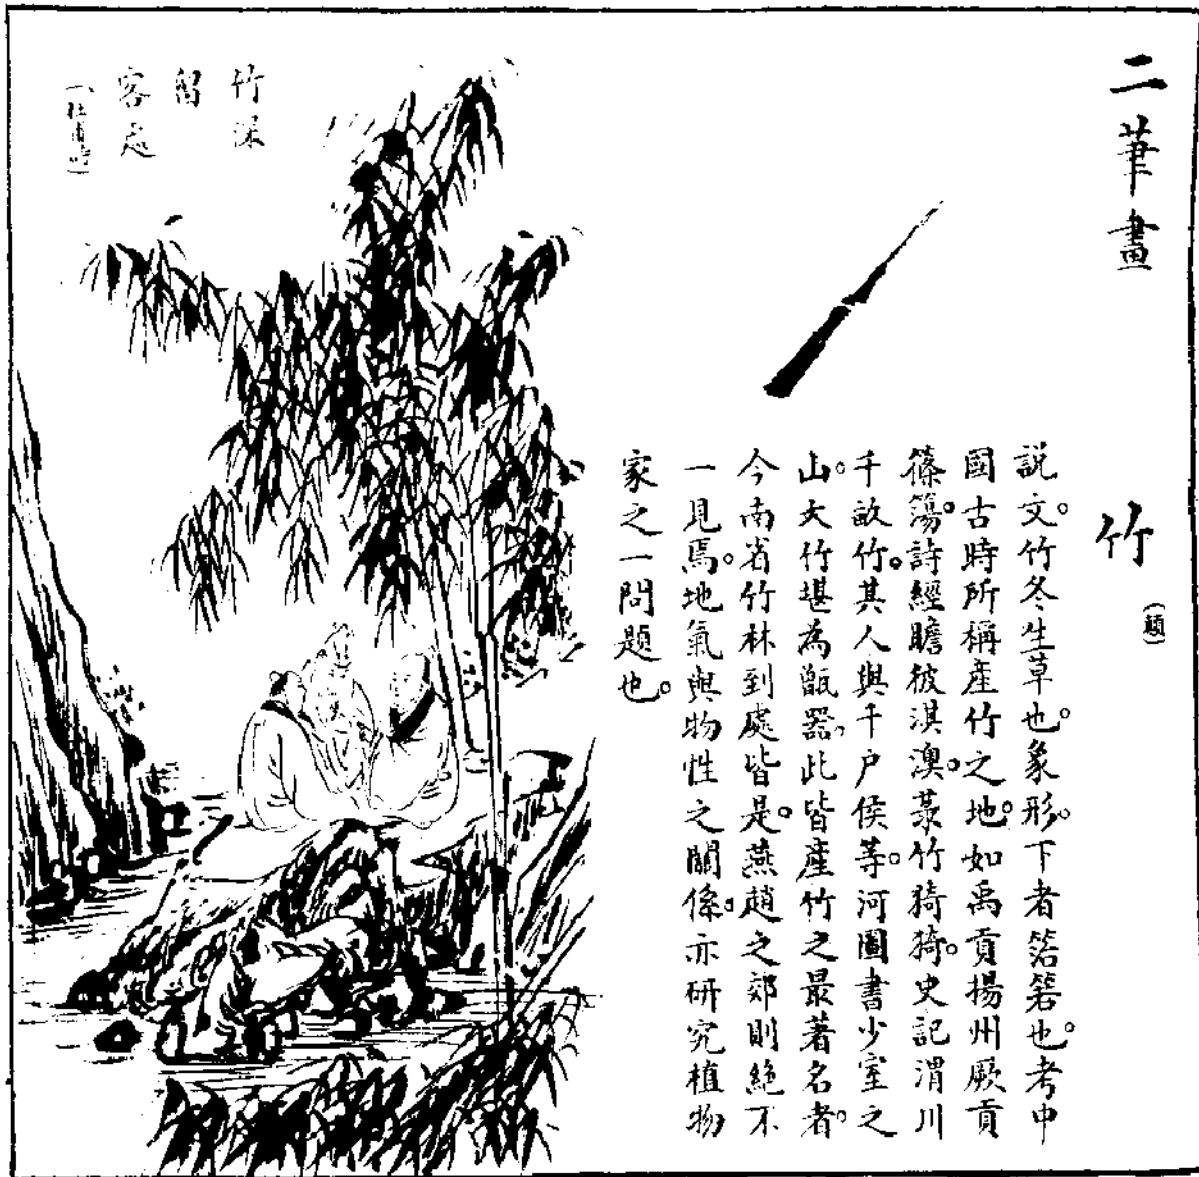 二筆畫
竹
(顛)
説文。竹冬生草也。象形。下者箁箬也。考中
國古時所稱產竹之地。如禹貢揚州厥貢
篠簜。詩經瞻彼淇澳。菉竹猗猗。史記渭川
千畝竹。其人與千户侯等。河圖書少室之
山。大竹堪為甑器。此皆產竹之最著名者。
今南省竹林到處皆是。燕趙之郊則絶不
一見焉。地氣與物性之關係。亦研究植物
家之一問題也。
竹深
留
客處
(杜甫詩)